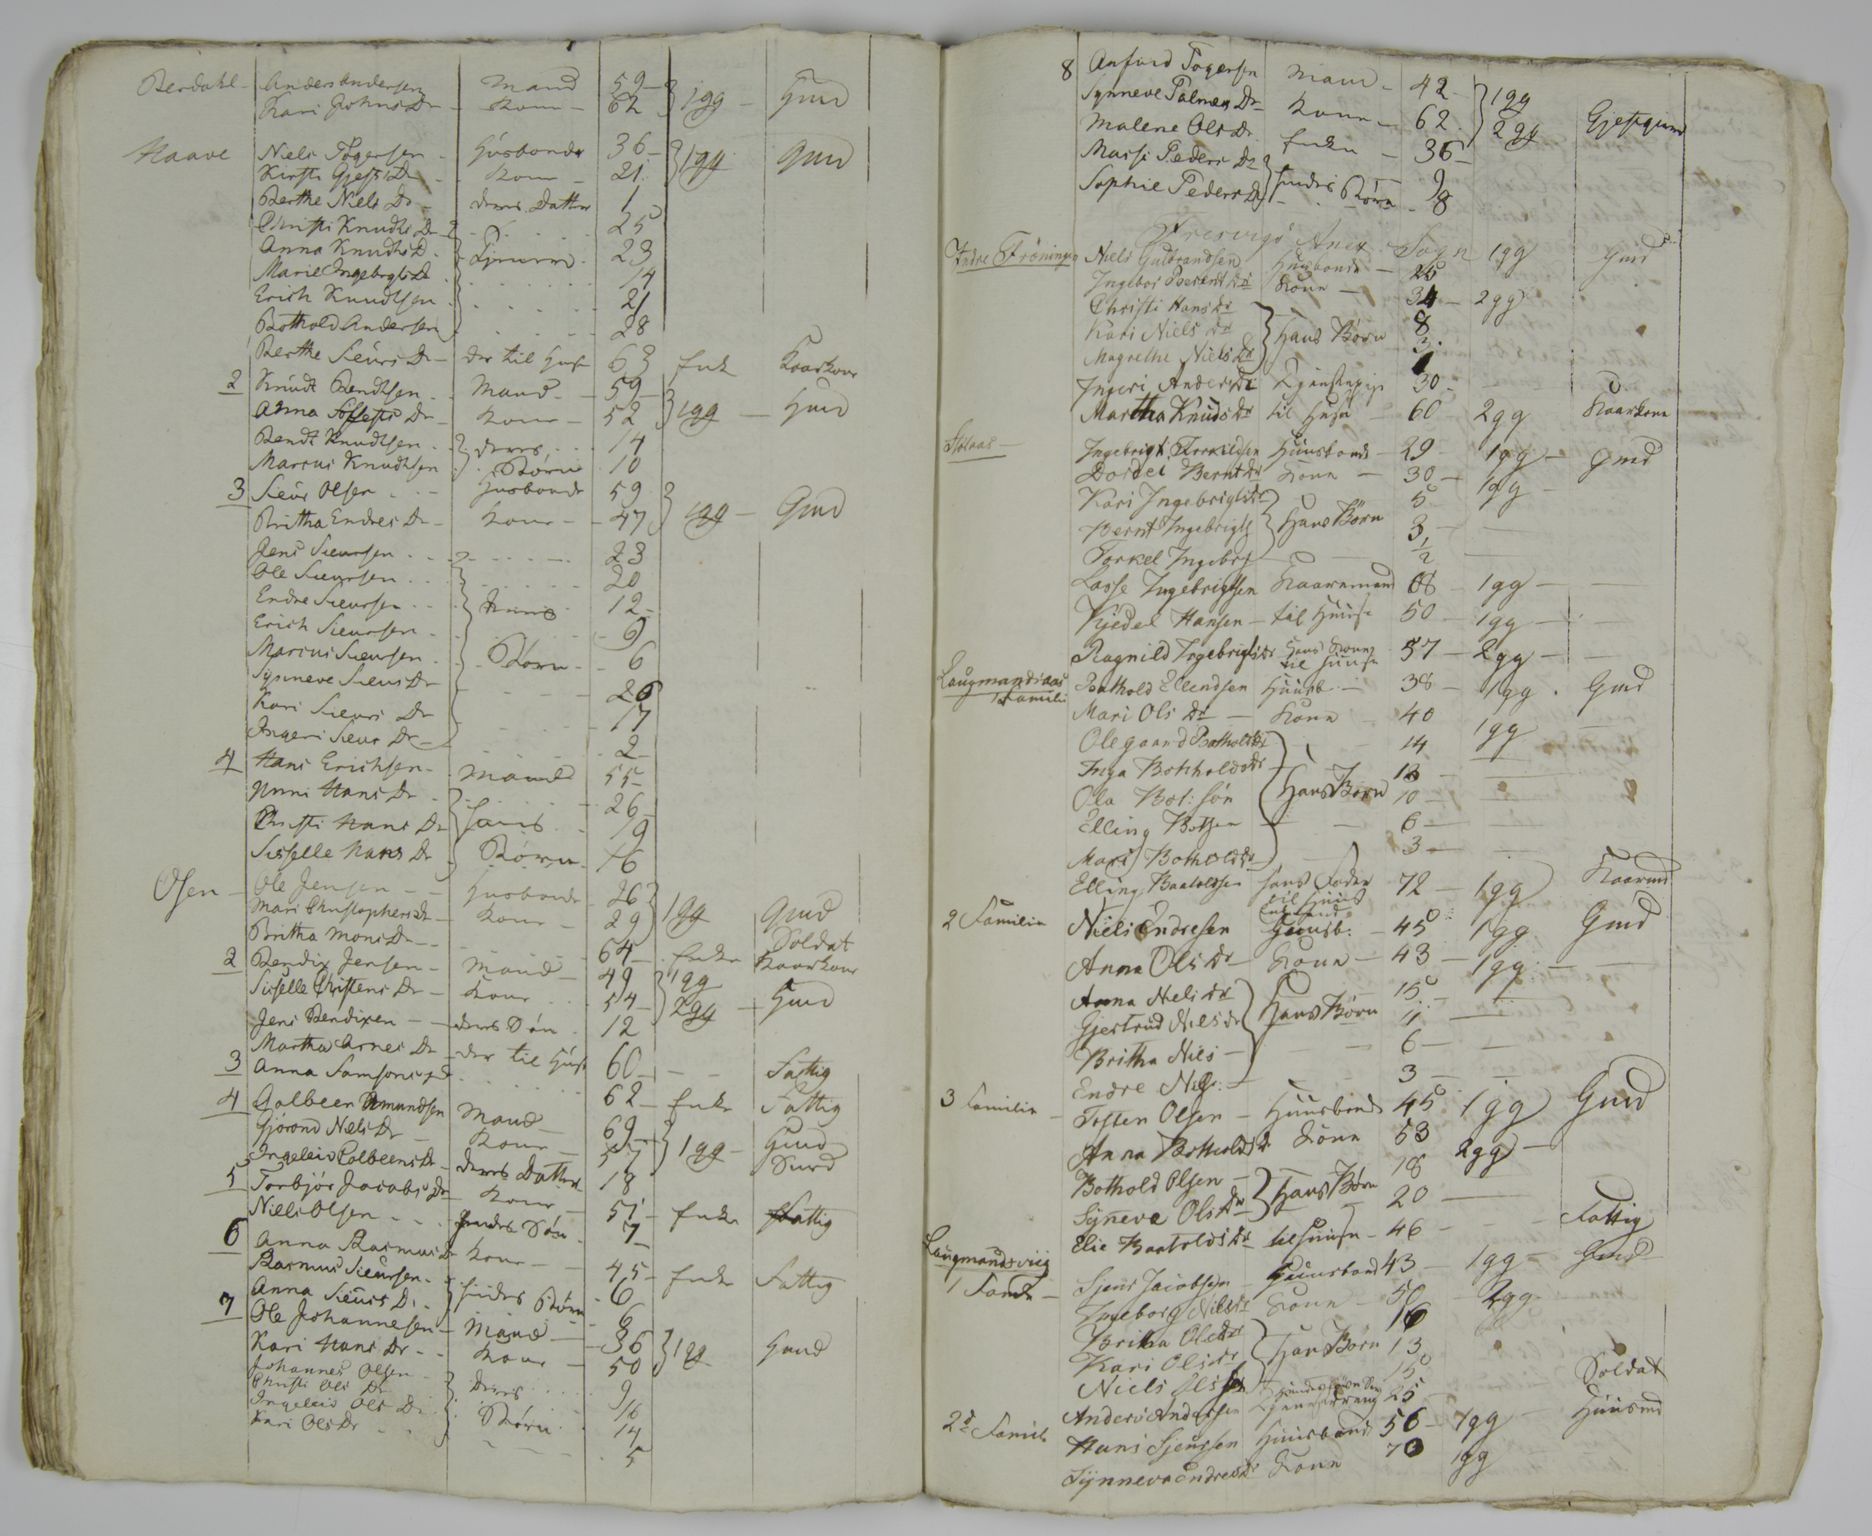 Berdahl - Anders Andersen Mand 59 - 1 gg - Gmd
Kari Johns Dr - Kone - 62
Haave Niels Togersen - Husbonde 36 - 1 gg Gmd
Kirsti Gjests Dr - Kone - 21
Berthe Niels Dr - deres Datter 1
Christi Knudts Dr 25
Anna Knudts D. 23
Marie Ingebrgts Dr 14
Erich Knudtsen 21
Bothold Andersen 28
Berthe Sieurs Dr - der til Huse 63 Enke Kaarkone
2 Knudt Bendtsen - Mand - 59 - 1 gg - Hmd
Anna Dr - Kone - 52
Bendt Knudtsen deres 14
Marcus Knudtsen Børn 10
3 Sieur Olsen Husbonde 59 1 gg - Gmd
Britha Endres Dr - Kone - 47
Jens Sieursen 23
Ole Sieursen 20
Endre Sieursen 12
Erich Sieursen 9
Marcus Sieursen Børn 6
Synneve Sieurs Dr 26
Kari Sieurs Dr 17
Ingeri Sieur Dr 2
4 Hans Erichsen Mand 55
Hans Dr 26
Christi Hans Dr hans 19
Sisselle Hans Dr Børn 16
Osen - Ole Jensen Husbonde 26 1 gg Gmd
Mari Christophers Dr Kone - 29 Soldat
Britha Mons Dr 64 - Enke Kaarkone
2 Bendix Jensen - Mand - 49 1 gg
Sisselle Christens Dr - Kone 54 2 gg - Hmd
Jens Bendixen - deres Søn 12
Martha Arnes Dr - der til Huse 60 - - Fattig
3 Anna Samsons D 62 - Enke Fattig
4 Colbeen Amundsen Mand 69 1 gg - Hmd
Gjørond Niels Dr Kone 57
Ingeleiv Colbeens Dr - deres Datter 18
5 Torbjør Jacobs Dr - Kone 51 - Enke Fattig
Niels Olsen - - hendes Søn 7
6 Anna Rasmus Dr Kone - 45 - Enke Fattig
Rasmus Sieursen hendes Børn 6
Anna Sieurs D. 6
7 Ole Johannesen - Mand - 36 1 gg Hmd
Kari Hans Dr - Kone - 50
Johannes Olsen deres 9
Christi Ols Dr 16
Ingeleiv Ols Dr Børn 14
Kari Ols Dr 5
8 Anfind Togersen Mand - 42 - 1 gg
Synneve Palmes Dr Kone - 62 2 gg Gjestgiver
Malene Ols Dr Enke - 36
Massi Peders Dr hendes Børn 9
Sophie Peders Dr 8
Fresvigs Anex Sogn
Indre Frøningen Niels Guldbrandsen Huusbonde 1 gg Gmd
Ingebor Berent Dr Kone - 34 - 2 gg
Christi Hans Dr 8
Kari Niels Dr Hans Børn 3
Magrethe Niels Dr 1
Ingeri Anders Dr 30
Martha Knuds Dr til Huse 60 - 2 gg Kaarkone
Ingebrigt Torkildsen Huusbonde 29 1 gg - Gmd
Dordei Bernt Dr Kone - 30 - 1 gg
Kari Ingebrigts Dr 5
Bernt Ingebrigts Hans Børn 3
Torkel Ingebrg 1/2
Lasse Ingebrigtsen Kaarnmand 68 - 1 gg
Kjedel Hansen - til Huuse 50 - 1 gg
Ragnild Ingebrigts Dr Hans Kone til Huuse 57 - 2 gg
Laugmandsaas 1 Familie Bothold Ellendsen Huusb. 38 - 1 gg Gmd
Mari Ols Dr - Kone 40 1 gg
Olegaard Botholds Dr 14
Inga Botholds Dr 12
Ola Bot: søn Hans Børn 10
Elling Botsen 6
Mari Botholds Dr 3
Elling Baatoldsen Hans Fader til Huus 72 - 1 gg Kaarmd
2 Familie Niels Endresen Huusb. - 45 1 gg Gmd
Anna Ols Dr Kone - 43 - 1 gg
Anna Niels Dr 15
Gjertrud Niels Dr Hans Børn 11
Britha Niels 6
Endre Niels: 3
3 Familie - Tosten Olsen - Huusbonde 45 1 gg Gmd
Anna Bothold Dr Kone 53 2 gg
Bothold Olsen 18
Synneve Ols Dr Hans Børn 20
Elie Baatolds Dr til Huuse - 46 - Fattig
Laugmandsviig 1 Famile - Sjeur Jacobsen Huusbond 43 - 1 gg - Gmd
Ingeborg Niels Dr Kone - 50 - 2 gg
Britha Ols Dr 16
Kari Ols Dr Hans Børn 13
Niels Olsen 15
Anders Andersen 25 Soldat
2d Famile Hans Sjeursen Huusbond 56 1 gg Huusmd
Synneva Endres Dr Kone 70 1 gg